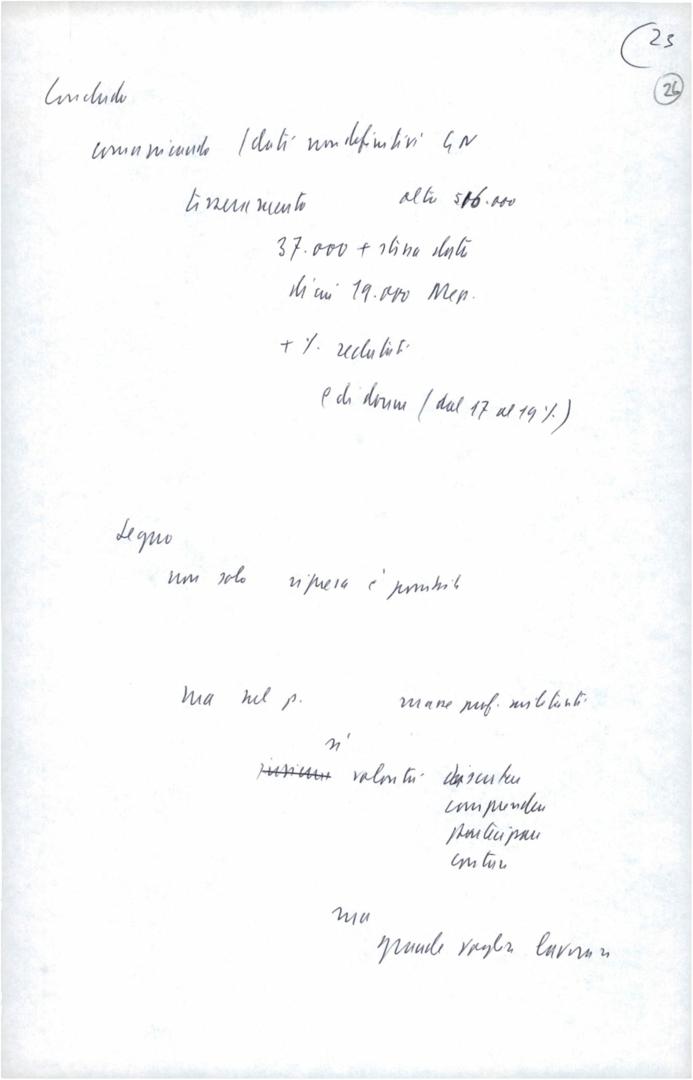 23
26
Concludo
comunicando / dati non definitivi GN
tesseramento oltre 516.000
37.000 + stessa data
di cui 19.000 Mer.
+ % reclutati
e di donne (dal 17 al 19%)
segno
non solo ripresa è possibile
ma nel p. masse prof. militanti
sì
volontà discutere
comprendere
partecipare
contare
ma
grande voglia lavorare